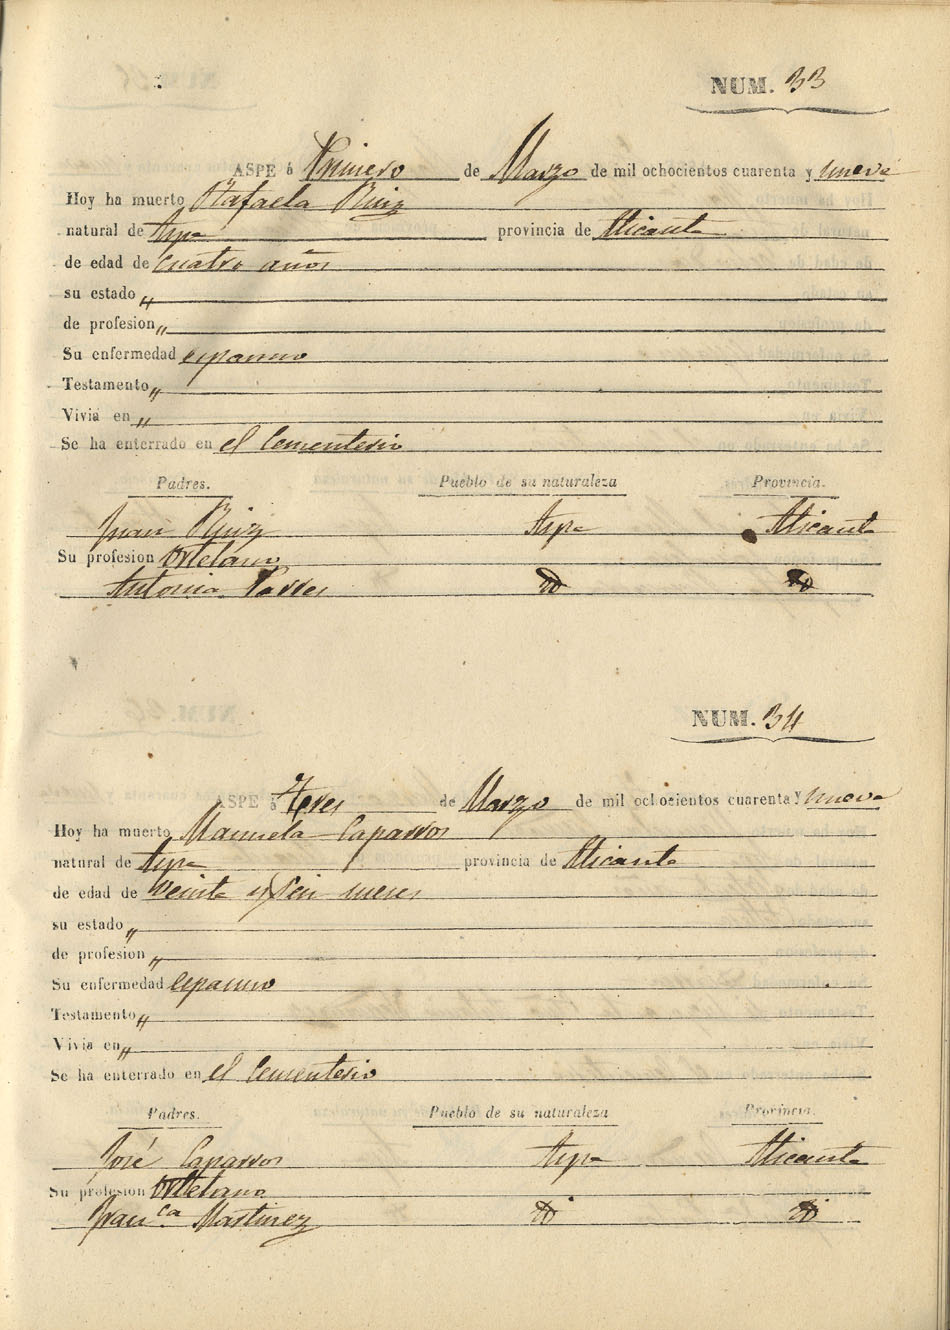 NUM. 33
ASPE á Primero de Marzo de mil ochocientos cuarenta y nueve
Hoy ha muerto Rafaela Ruiz
natural de Aspe provincia de Alicante
de edad de cuatro años
su estado „
de profesion „
Su enfermedad espasmo
Testamento „
Vivia en „
Se ha enterrado en el Cementerio
Padres. Pueblo de su naturaleza Provincia.
Juan Ruiz Aspe Alicante
Su profesion Ortelano
Antonia
NUM. 34
ASPE á Tres de Marzo de mil ochosientos cuarenta y nueve
Hoy ha muerto Manuela Caparros
natural de Aspe provincia de Alicante
de edad de veinte y seis meses
su estado „
de profesion „
Su enfermedad espasmo
Testamento „
Vivia en „
Se ha enterrado en el Cementerio
Padres. Pueblo de su naturaleza Provincia.
José Caparros Aspe Alicante
Su profesion Ortelano
Franca Martinez